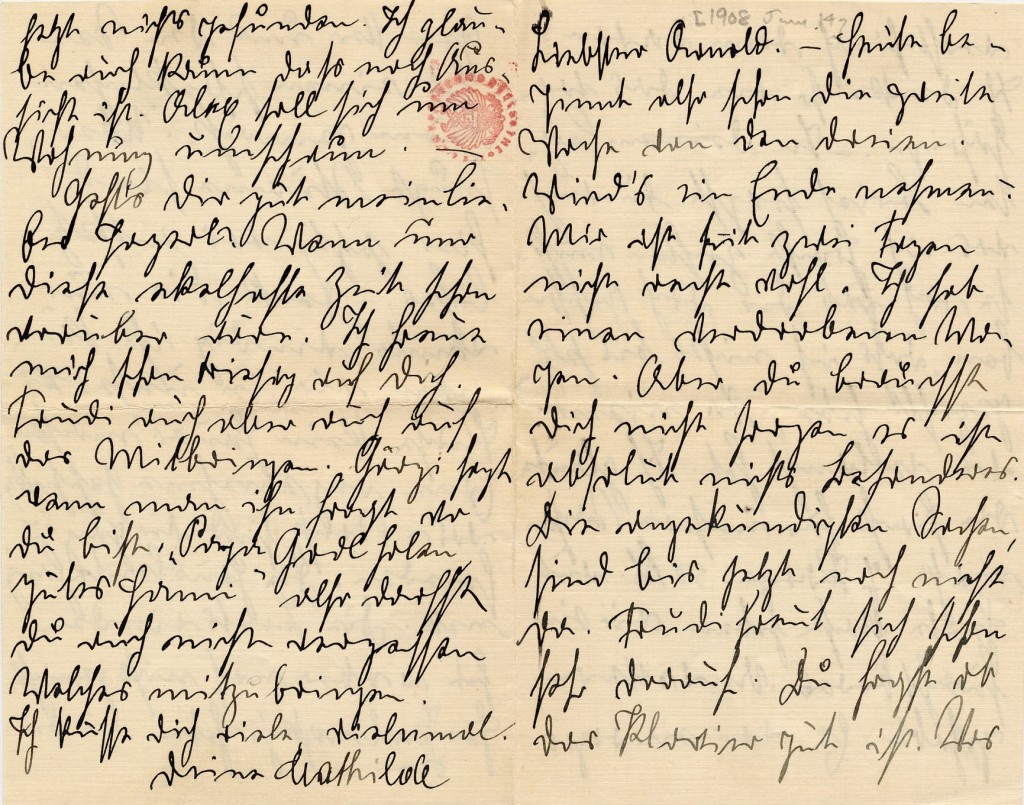 [1908 June 14?
Liebster Arnold. – Heute be-
ginnt also schon die zweite
Woche von den dreien.
Wird's ein Ende nehmen?
Mir ist seit zwei Tagen
nicht recht wohl. Ich hab
einen verdorbenen Ma-
gen. Aber du brauchst
dich nicht sorgen es ist
absolut nichts besonderes.
Die angekündigten Sachen,
sind bis jetzt noch nicht
da. Trudi freut sich schon
sehr darauf. Du fragst ob
das Klavier gut ist. Was
jetzt nichts gefunden. Ich glau-
be auch kaum dass noch Aus-
sicht ist. Alex soll sich um
Wohnung umschaun. —
Geht's dir gut mein lie-
ber Wenn nur
diese ekelhafte Zeit schon
vorüber wäre. Ich freue
mich schon riesig auf dich.
Trudi auch aber auch auf
das Mitbringen. Görgi sagt
wenn man ihn fragt wo
du bist, „Papa Gadl holen,
gutes Hami" also darfst
du auch nicht vergessen
Welches mitzubringen.
Ich küsse dich viele, vielemal.
Deine Mathilde